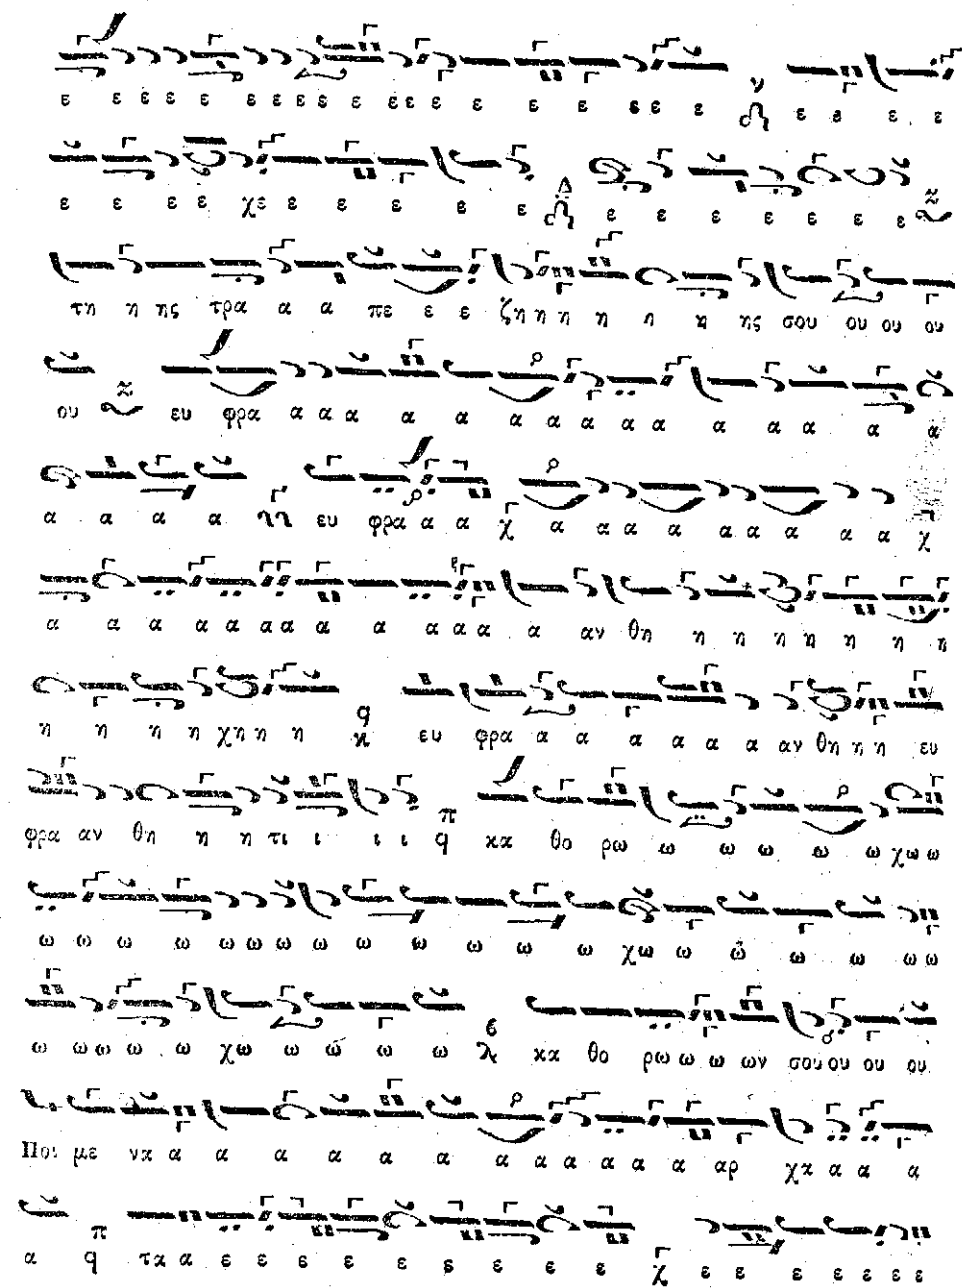 ε ε ε ε ε ε ε ε ε ε ε ε ε ε ε ε ε ε ε ν ε ε ε ε
ε ε ε ε χε ε ε ε ε ε Δ ε ε ε ε ε ε ε
τη η ης τρα α α πε ε ε ζη η η η η η ης σου ου ου ου
ου ευ φρα α α α α α α α α α α α α α α α
α α α α ευ φρα α α χ α α α α α α α α α χ
α α α α α α α α α α α α α αν θη η η η η η η η
η η η η χη η η q ευ φρα α α α α α α αν θη η η ευ
φρα αν θη η η τι ι ι ι π q κα θο ρω ω ω ω ω ω χω ω
ω ω ω ω ω ω ω ω ω ω ω ω ω χω ω ω ω ω ω ω
ω ω ω ω ω χω ω ω ω ω λ κα θο ρω ω ω ων σου ου ου ου
Ποι με να α α α α α α α α α α α α αρ χα α α α
α π q τα α ε ε ε ε ε ε ε ε ε χ ε ε ε ε ε ε ε